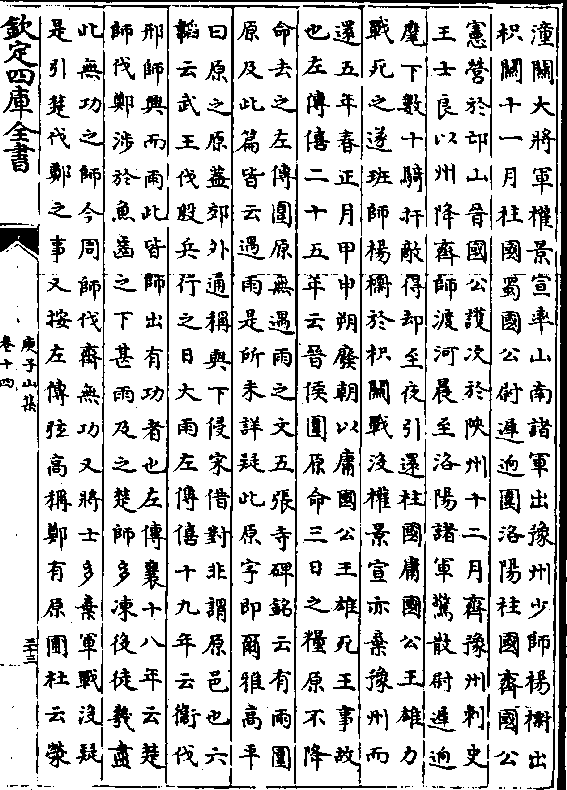 潼關大將軍權景宣率山南諸軍出豫州少師楊㯹出
枳關十一月柱國蜀國公尉遲迥圍洛陽柱國齊國公
憲營於邙山晉國公護次於陝州十二月齊豫州刺史
王士良以州降齊師渡河晨至洛陽諸軍驚散尉遲迥
麾下數十騎扞敵得却至夜引還柱國庸國公王雄力
戰死之遂班師楊㯹於枳關戰沒權景宣亦棄豫州而
還五年春正月甲申朔廢朝以庸國公王雄死王事故
也左傳僖二十五年云晉侯圍原命三日之糧原不降
命去之左傳圍原無遇雨之文五張寺碑銘云有雨圍
原及此篇皆云遇雨是所未詳疑此原字即爾雅高平
曰原之原蓋郊外通稱與下侵宋借對非謂原邑也六
韜云武王伐殷兵行之日大雨左傳僖十九年云衛伐
邢師興而雨此皆師出有功者也左傳襄十八年云楚
師伐鄭涉於魚齒之下甚雨及之楚師多凍役徒幾盡
此無功之師今周師伐齊無功又將士多棄軍戰沒疑
是引楚伐鄭之事又按左傳弦高稱鄭有原圃杜云滎
欽定四庫全書
庾子山集
卷十四
三十三